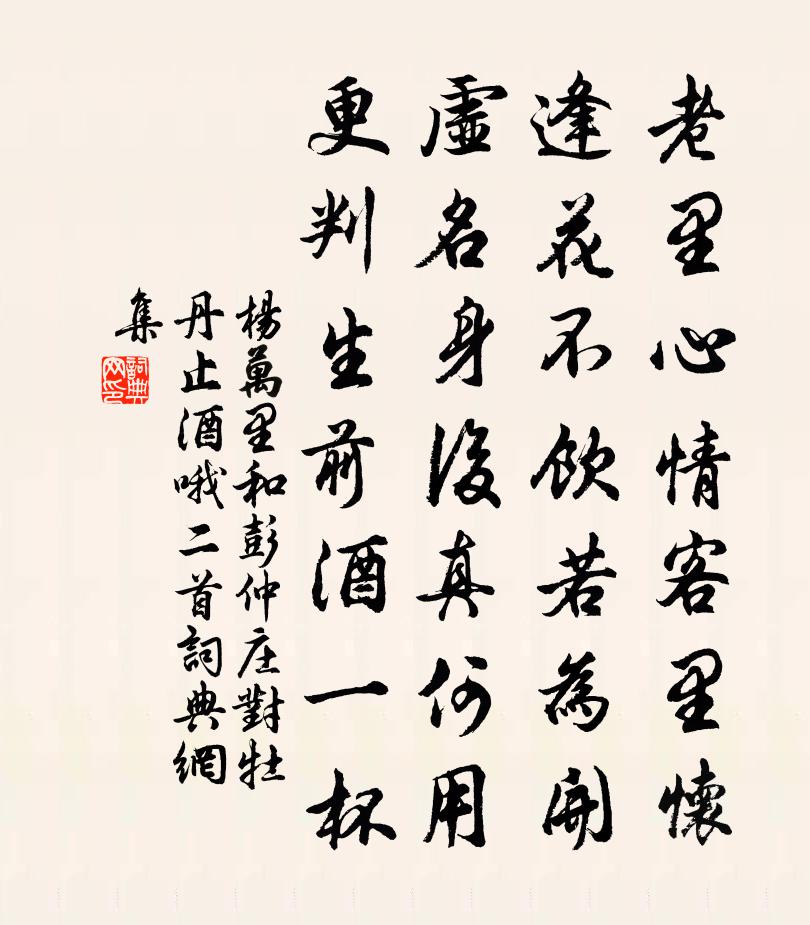 老里心情客里懷
逢花不飲若為開
虛名身後真何用
更判生前酒一杯
楊萬里和彭仲庄對牡
丹止酒哦二首詞典網
集
詞典
网印